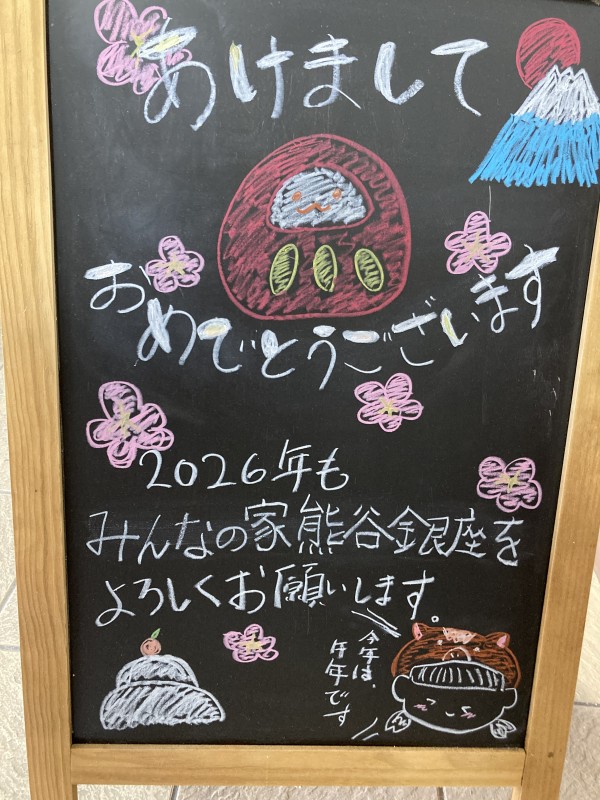 あけまして
おめでとうございます
2026年も
みんなの家熊谷銀座を
よろしくお願いします。
今年は、
午年です